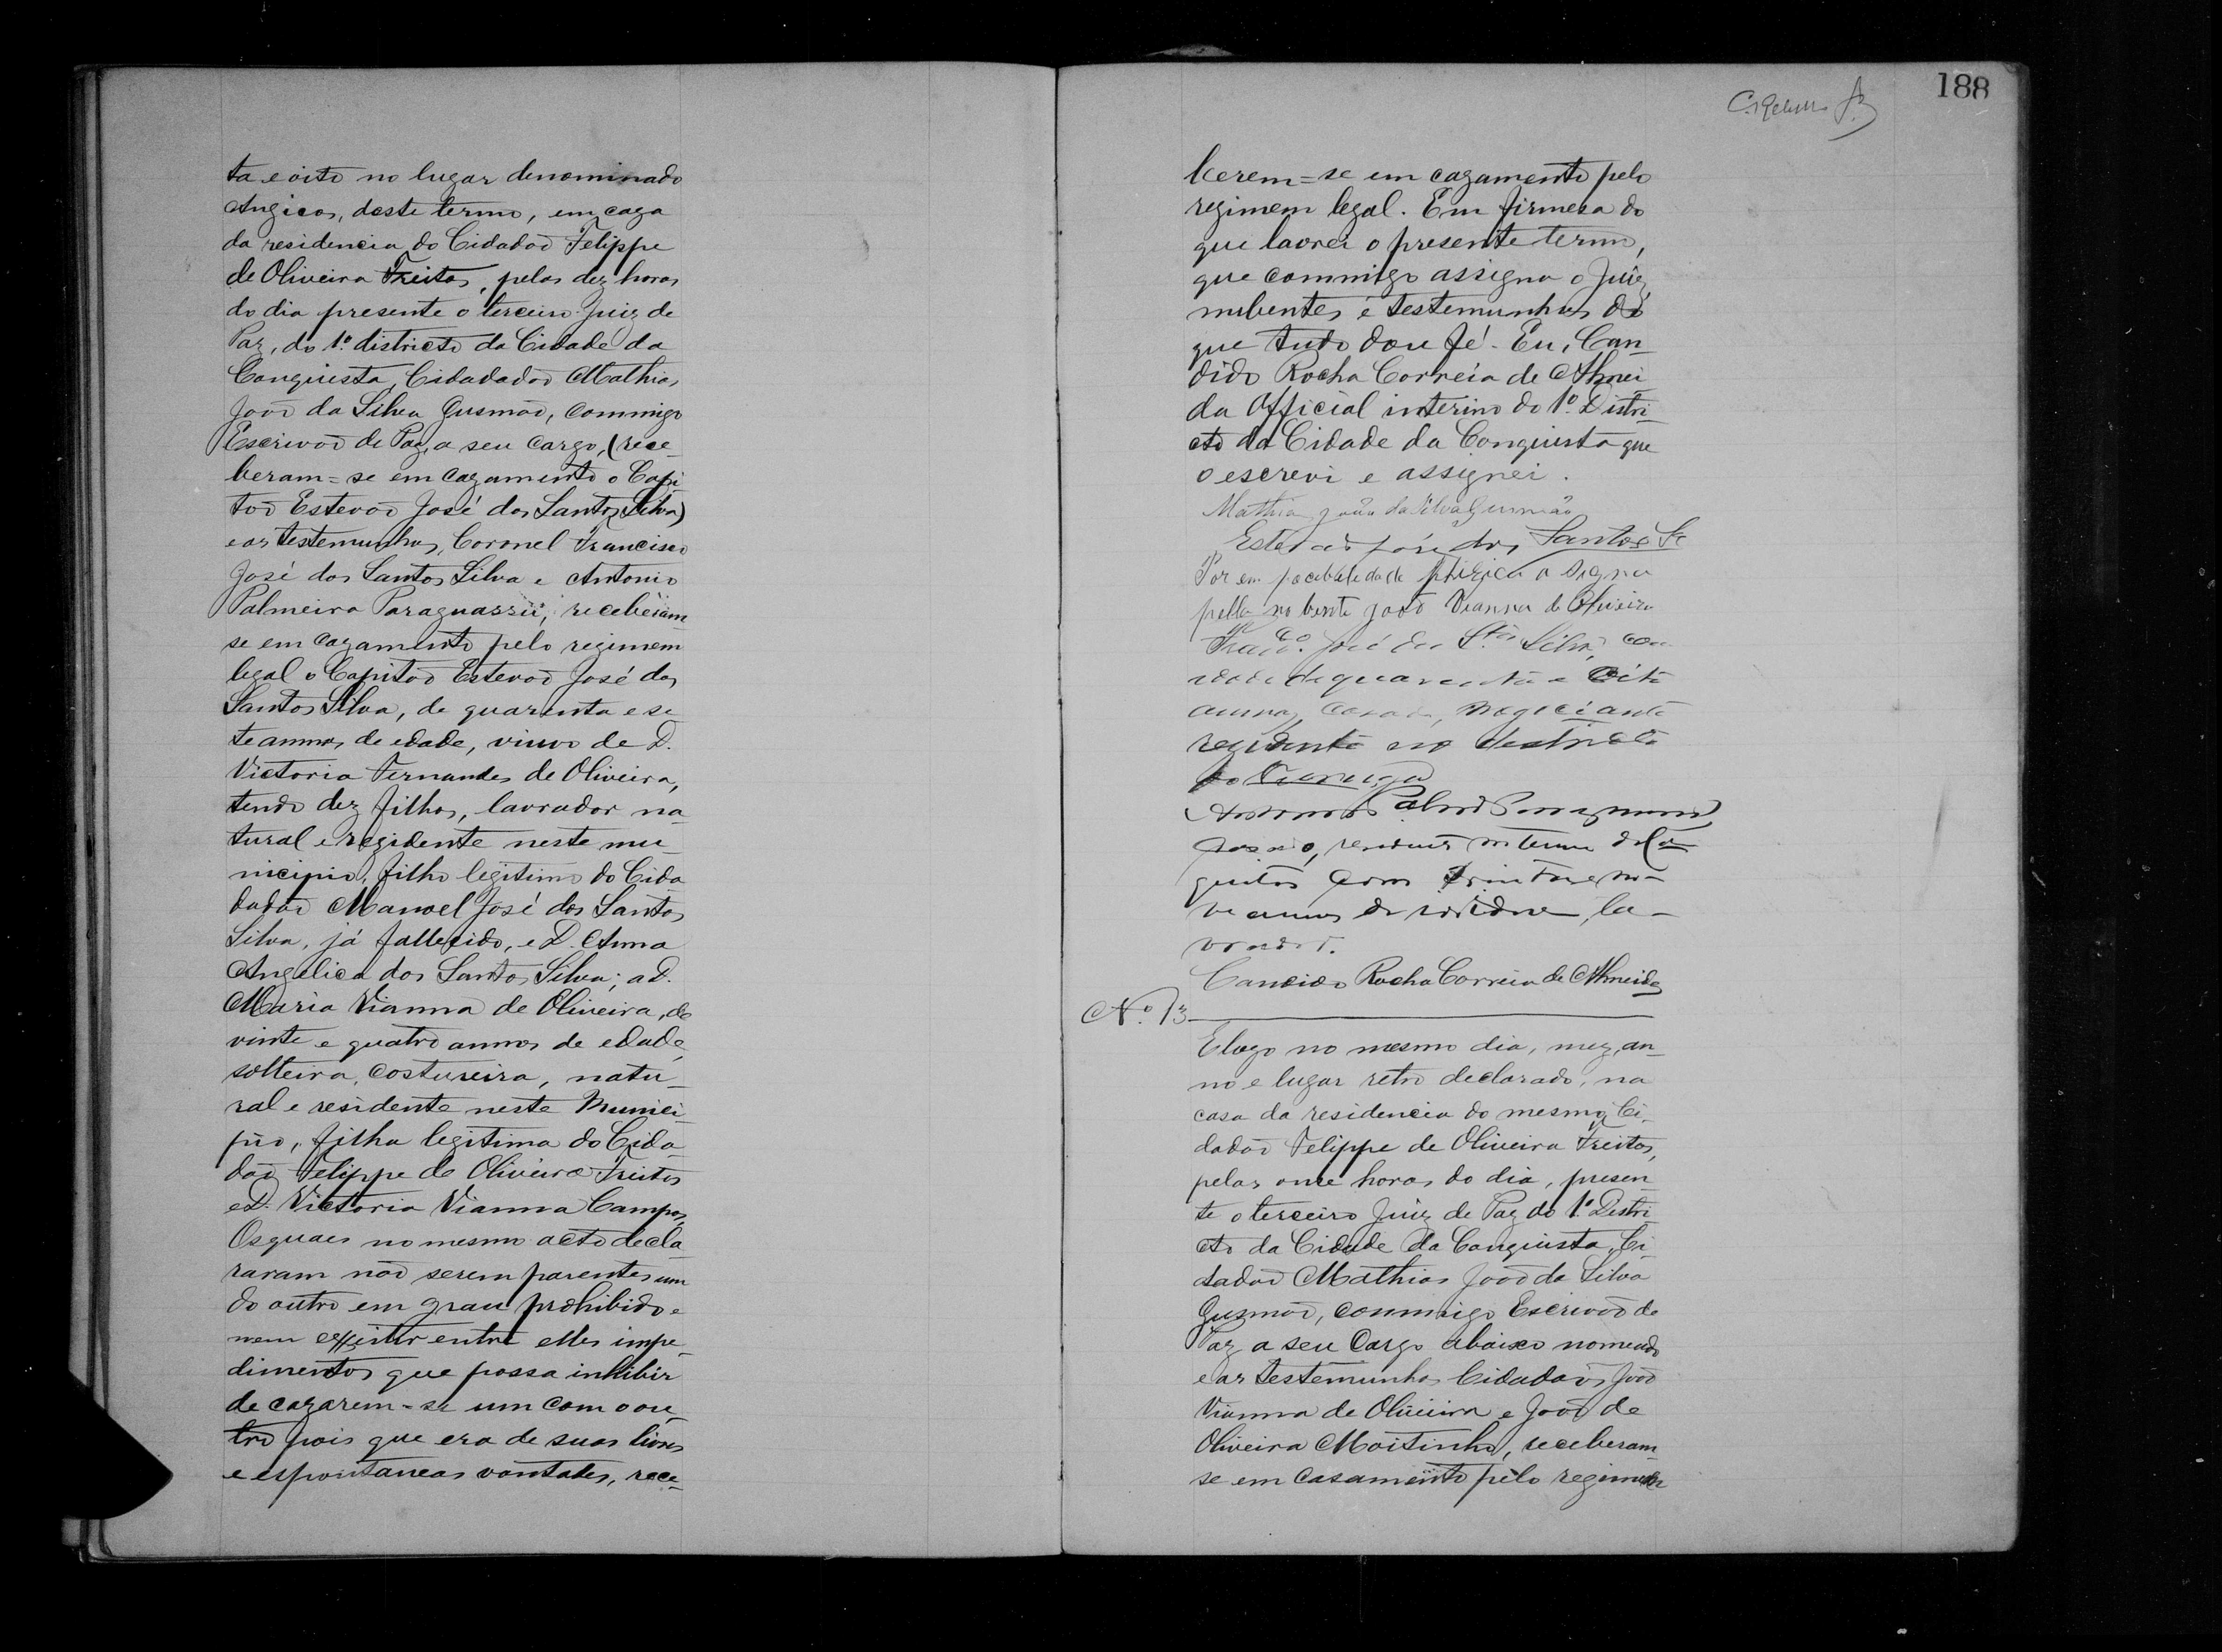 ta e oito no lugar denominado
Angicos, deste termo, em caza
da residencia do Cidadaõ Felippe
de Oliveira Freitas, pelas dez horas
do dia presente o terceiro Juiz de
Paz, do 1º districto da Cidade da
Conquista, Cidadadaõ Mathias
Joaõ da Silva Gusmaõ, commigo
Escrivaõ de Paz, a seu cargo, (rece-
beram=se em cazamento o Capi
taõ Estevaõ José dos Santos Silva)
e as testemunhas, Coronel Francisco
José dos Santos Silva e Antonio
Palmeira Paraguassú, receberam
se em cazamento pelo regimem
legal o Capitaõ Estevaõ José dos
Santos Silva, de quarenta e se
te annos de edade, viuvo de D.
Victoria Fernandes de Oliveira,
tendo dez filhos, lavrador na-
tural e rezidente neste mu-
nicipio, filho legitimo do Cida
dadaõ Manoel José dos Santos
Silva, já fallecido, e D. Anna
Angelica dos Santos Silva; a D.
Maria Vianna de Oliveira, de
vinte e quatro annos de edade,
solteira, costureira, natu-
ral e residente neste Munici
pio, filha legitima do Cida-
daõ Felippe de Oliveira Freitas
e D. Victoria Vianna Campos,
Os quaes no mesmo acto decla-
raram naõ serem parentes um
do outro em grau prohibido e
nem existir entre elles impe-
dimentos que possa inhibir
de cazarem-se um com o ou-
tro pois que era de suas livres
e espontaneas vontades, rece-
188
berem=se em cazamento pelo
regimem legal. Em firmeza do
que lavrei o presente termo,
que commigo assigna o Juiz,
nubentes e testemunhas do
que tudo dou fé. Eu, Can-
dido Rocha Correia de Almei
da Official interino do 1º Distri
cto da Cidade da Conquista que
o escrevi e assignei.
Mathias João da Silva Gusmão
Estevao José dos Santos Sa
Por em pocebelidade phizica a signa
pella no bente Joaõ Vianna de Oliveira
Franco. José dos Stos Silva, com
idade de quarenta e oito
annos, Casado, Negociante
rezidente no destricto
do
Antonio
com trinta e no-
ve annos de idade, la-
vrador.
Candido Rocha Correia de Almeida
Nº 13
E logo no mesmo dia, mez, an-
no e lugar retro declarado, na
casa da residencia do mesmo Ci-
dadaõ Felippe de Oliveira Freitas,
pelas onze horas do dia, presen-
te o terceiro Juiz de Paz do 1º Distri
cto da Cidade da Conquista, Ci-
dadaõ Mathias Joaõ da Silva
Gusmaõ, commigo Escrivaõ de
Paz a seu Cargo abaixo nomeado
e as testemunhas Cidadaõs Joaõ
Vianna de Oliveira e Joaõ de
Oliveira Moitinho, receberam-
se em casamento pelo regimem